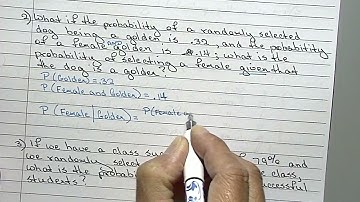 2) What if the probability of a randomly selected
dog being a golden is .32, and the pobability
of a female and golden is .14, what is the
probability of selecting a female given that
the dog is a golden?
P(Golden)=.32
P(Female and Golden) = .14
P(Female | Golden) = P(Female a
3) If we have a class
we randomly select
what is the
students?
of 79% and
class,
successful